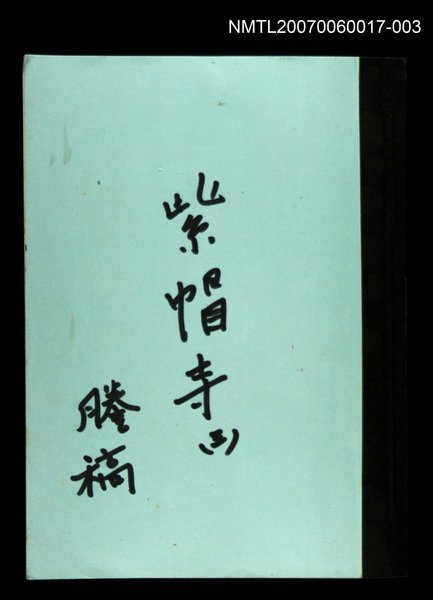 NMTL20070060017-003
紫帽寺(三)
謄稿